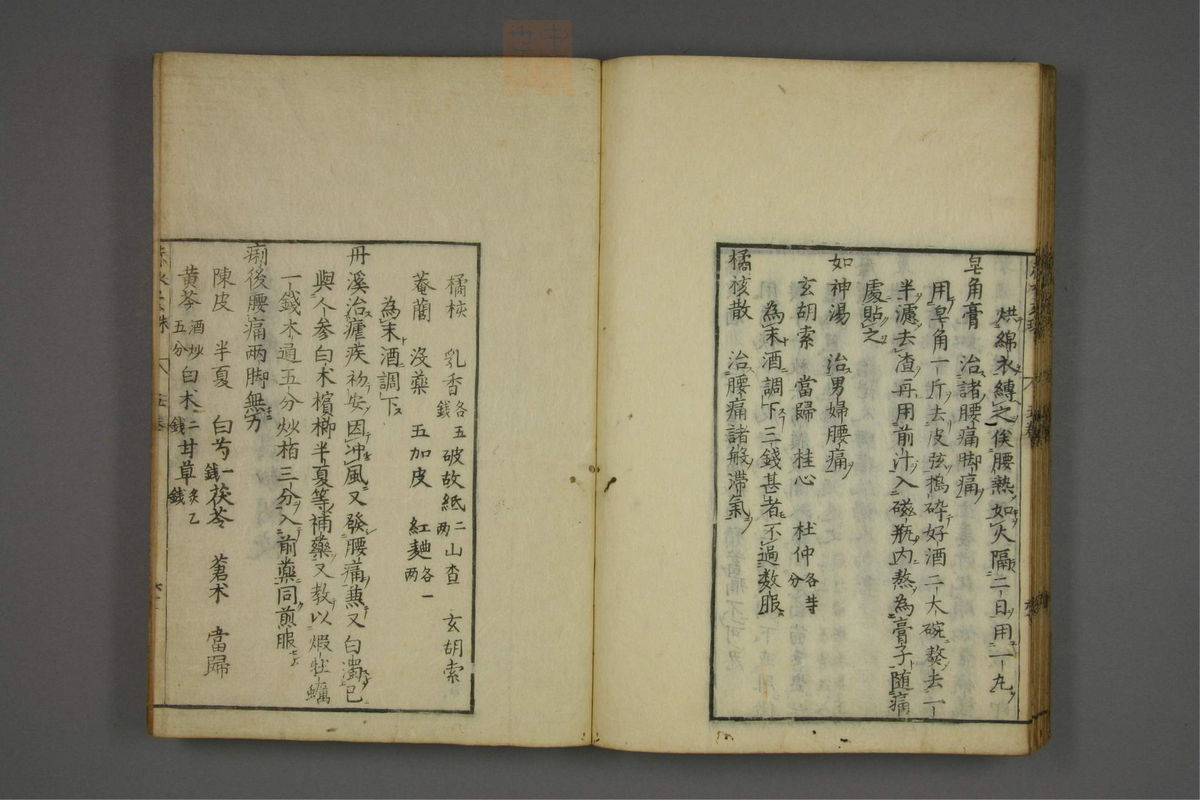 烘綿衣縛之俟腰熱如火隔二日用一丸
皂角膏　治諸腰痛脚痛
用皂角一斤去皮弦搗碎好酒二大碗熬去一
半濾去渣再用前汁入磁瓶內熬為膏子随痛
處貼之
如神湯　治男婦腰痛
玄胡索　當歸　桂心　杜仲各等分
為末酒調下三錢甚者不過数服
橘核散　治腰痛諸般滞氣
橘核　乳香各五錢　破故紙二兩　山查　玄胡索
菴䕡　没藥　五加皮　紅麯各一兩
為末酒調下
丹溪治瘧疾初安因冲風又發腰痛兼又白濁已
與人参白术檳榔半夏等補藥又教以煆牡蠣
一錢木通五分炒栢三分入前藥同煎服
痢後腰痛兩脚無力
陳皮　半夏　白芍一錢　茯苓　蒼术　當歸
黄芩酒炒五分　白术二錢　甘草炙乙錢